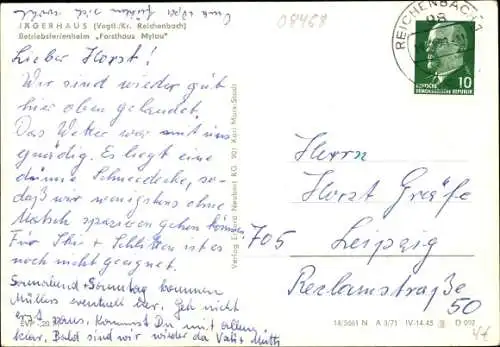 JÄGERHAUS (Vogtl./Kr. Reichenbach)
Betriebsferienheim „Forsthaus Mylau“
08468
REICHENBACH 1
98
10
DEUTSCHE
DEMOKRATISCHE REPUBLIK
Lieber Horst!
Wir sind wieder gut
hier oben gelandet.
Das Wetter war mit uns
gnädig. Es liegt eine
dünne Schneedecke, so-
daß wir wenigstens ohne
Matsch spazieren gehen können.
Für Ski + Schlitten ist es
noch nicht geeignet.
Sonnabend + Sonntag kommen
Müllers eventuell her. Geh nicht
erst raus, kommst Du mit allem
klar. Bald sind wir wieder da Vati + Mutti
Verlag Erhard Neubert KG, 901 Karl-Marx-Stadt
Herrn
Horst Gräfe
705 Leipzig
Reclamstraße
50
14/3661 N A 3/71 IV-14-45 D 092